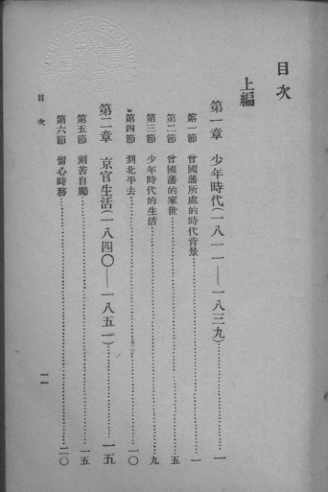 目次
上編
第一章 少年時代(一八一一——一八三九)……一
第一節 曾國藩所處的時代背景……一
第二節 曾國藩的家世……五
第三節 少年時代的生活……九
第四節 到北平去……一〇
第二章 京官生活(一八四〇——一八五一)……一五
第五節 刻苦自勵……一五
第六節 留心時務……二〇
目次
一